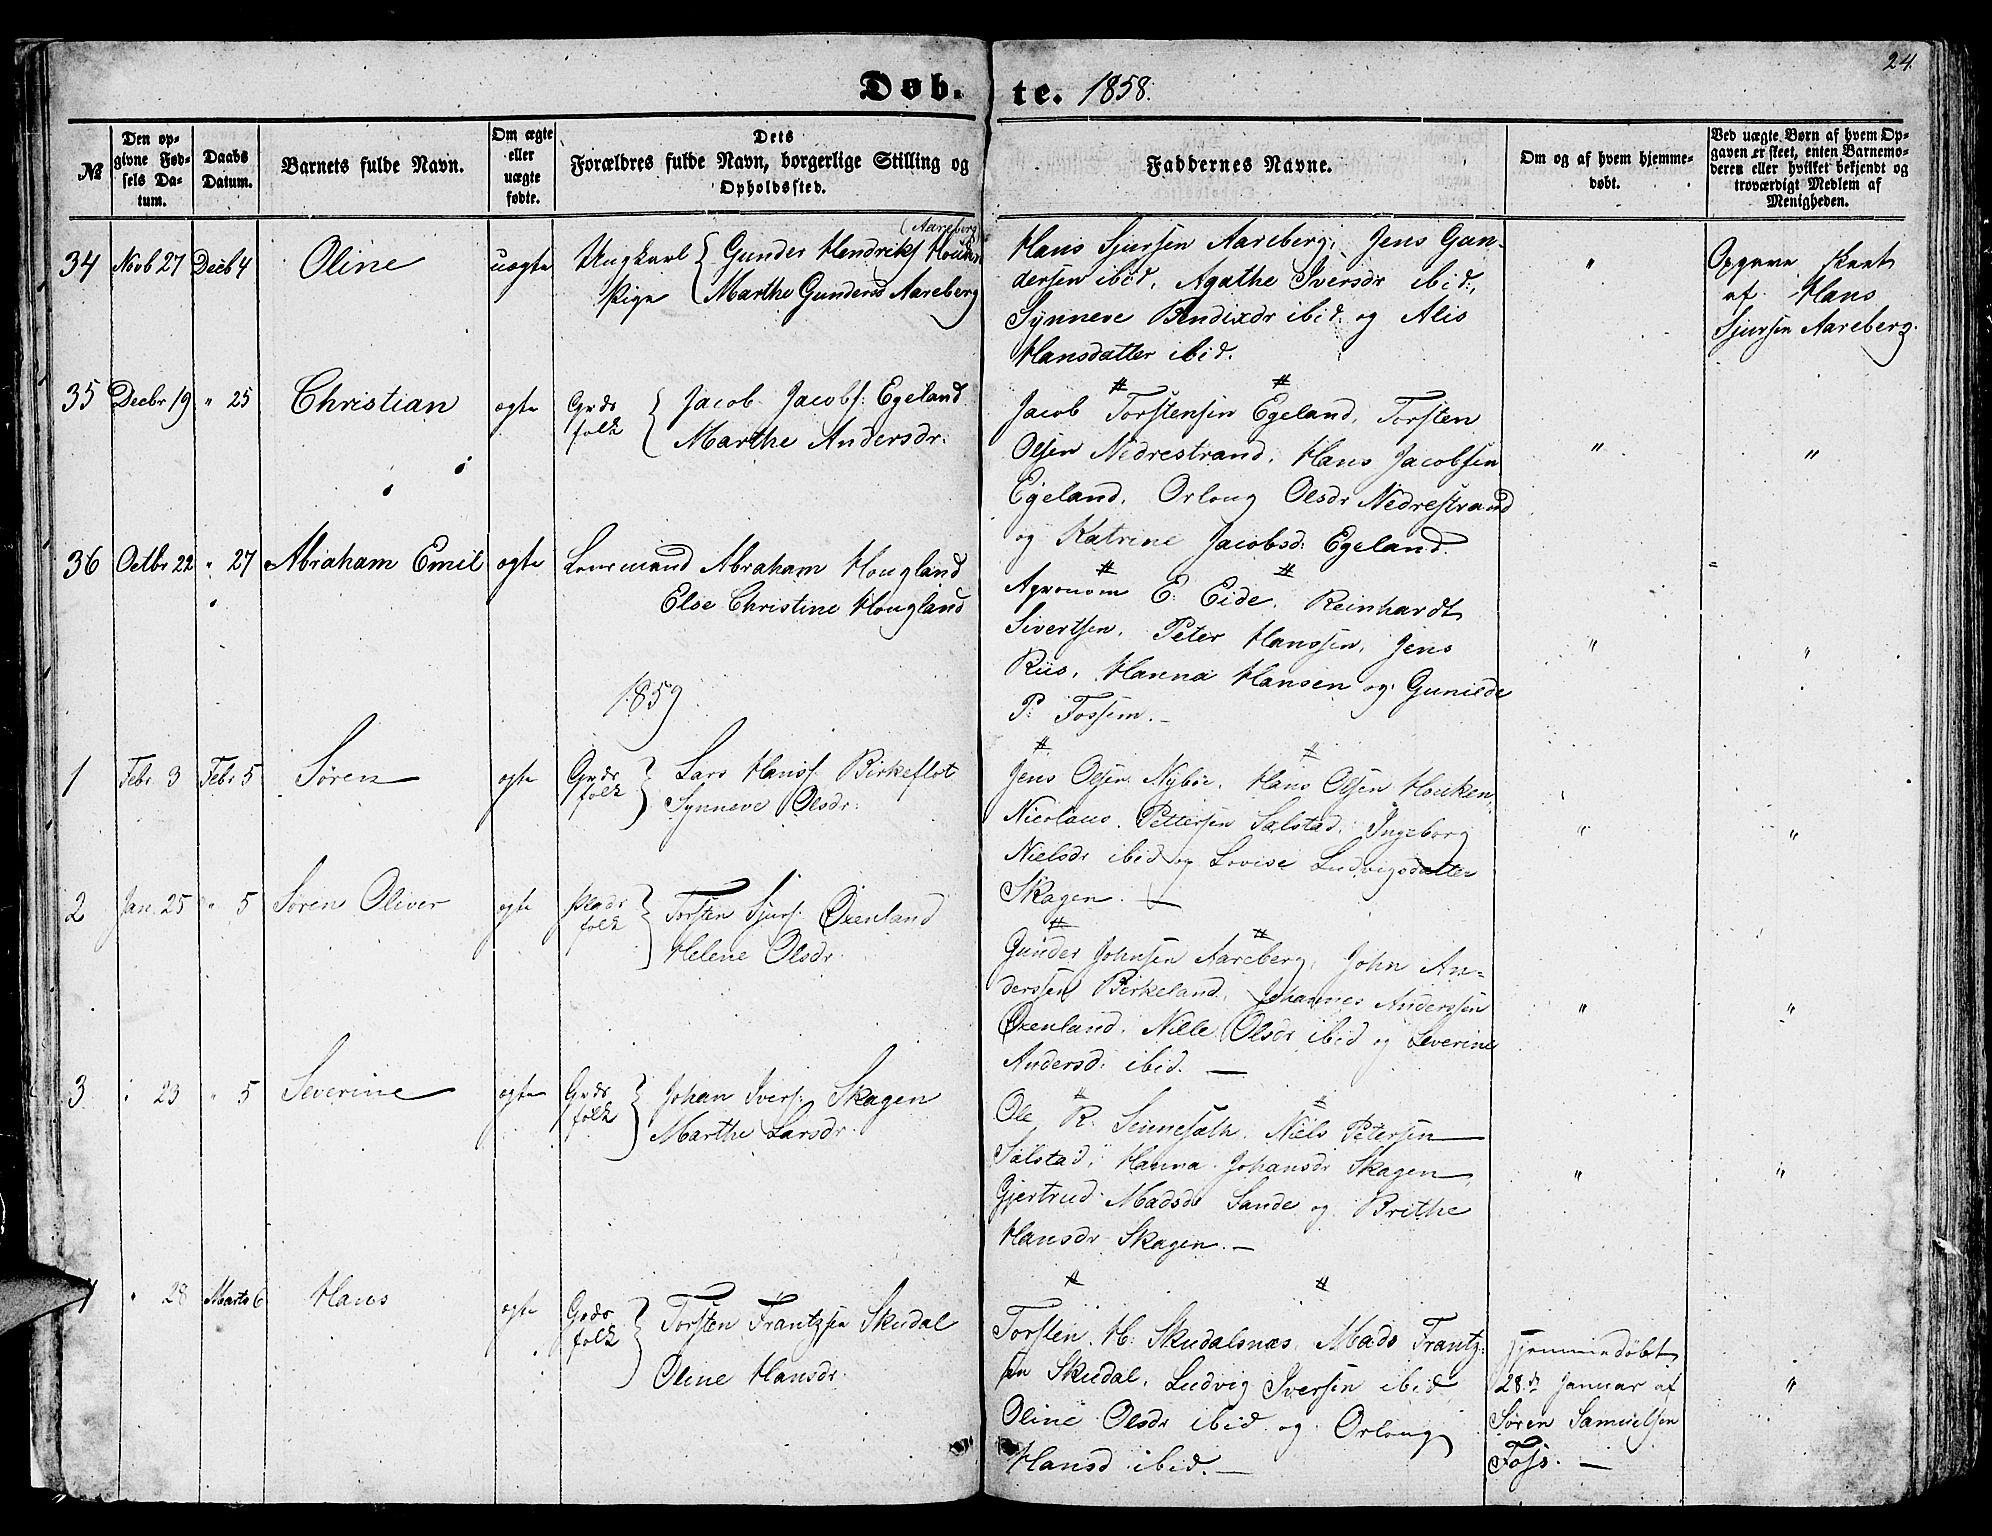 24.
Døb. te. 1858.
№
Den opgivne Fødsels Datum.
Daabs Datum.
Barnets fulde Navn.
Om ægte eller uægte fødte.
Dets Forældres fulde Navn, borgerlige Stilling og Opholdssted.
Faddernes Navne.
Om og af hvem hjemmedøbt.
Ved uægte Børn af hvem Opgaven er skeet, enten Barnemoderen eller hvilket bekjendt og troværdigt Medlem af Menigheden.
34 Novb 27 Decb 4 Oline uægte
(Aareberg)
Ungkarl Gunder Hendriks
Pige Marthe Gundersd Aareberg
Hans Sjursen Aareberg, Jens Gun-
dersen ibid, Agathe Iversdr ibid,
Synneve Bendixdr ibid og Alis
Hansdatter ibid.
"
Opgave skeet
af Hans
Sjursen Aareberg.
35 Decbr 19 " 25 Christian ægte
Grds folk Jacob Jacobs: Egeland
Marthe Andersdr.
Jacob Torstensen Egeland, Torsten
Olsen Nedrestrand, Hans Jacobsen
Egeland, Orloug Olsdr Nedrestrand
og Katrine Jacobsd: Egeland.
" "
36 Octbr 22 " 27 Abraham Emil ægte
Lensmand Abraham Hougland
Else Christine Hougland
Agronom E. Eide, Reinhardt
Sivertsen, Peter Hanssen, Jens
Riis, Hanna Hansen og Gunilde
P. Tossem. –
" "
1859
1 Febr 3 Febr 5 Søren ægte
Grds folk Lars Hans: Birkeflot
Synneve Olsdr:
Jens Olsen Nybøe, Hans Olsen Houken,
Nicolaus Pettersen Sælstad, Ingeborg
Nielsdr ibid og Lovise Ludvigsdatter
Skagen. –
" "
2 Jan. 25 " 5 Søren Oliver ægte
Plads folk Torsten Sjurs: Øxenland
Helene Olsdr.
Gunder Johnsen Aareberg, John An-
derssen Birkeland, Johannes Anderssen
Øxenland, Nille Olsdr ibid og Severine
Andersd. ibid. –
" "
3 " 23 " 5 Severine ægte
Grds folk Johan Ivers: Skagen
Marthe Larsdr.
Ole R. Seimesæth, Niels Petersen
Sælstad, Hanna Johansdr Skagen,
Gjertrud Madsdr Sande og Brithe
Hansdr Skagen. –
" "
4 " 28 Marts 6 Hans ægte
Grds folk Torsten Frantzsen Skudal
Oline Hansdr.
Torsten H: Skudalsnæs, Mads Frantz-
sen Skudal, Ludvig Iversen ibid
Oline Olsdr ibid og Orloug
Hansd ibid. –
Hjemmedøbt
28de Januar af
Søren Samuelsen
Foss. –
"